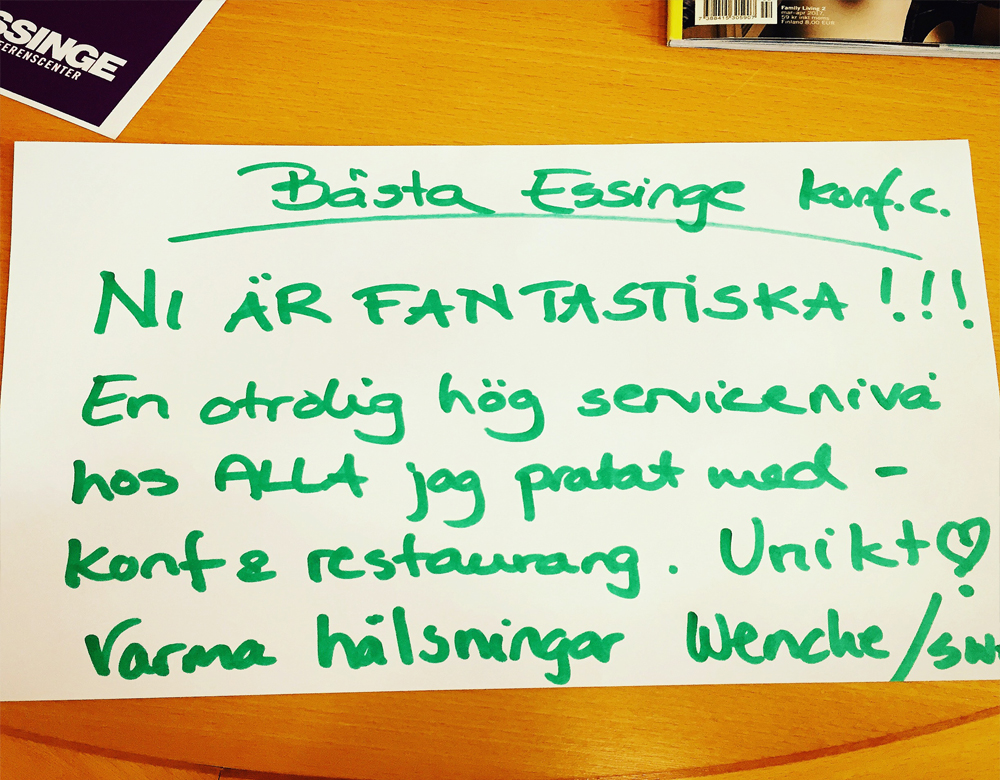 SSINGE
ERENSCENTER
Family Living 2
mar-apr 2017.
59 kr inkl moms
Finland 8.00 EUR
Bästa Essinge konf.c.
NI ÄR FANTASTISKA !!!
En otrolig hög servicenivå
hos ALLA jag pratat med -
konf & restaurang. Unikt♡!
Varma hälsningar Wenche/sw